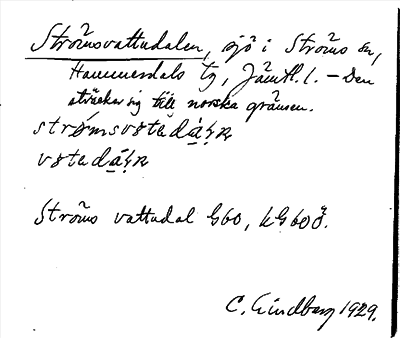 Strömsvattudalen, sjö i Ströms sn,
Hammerdals tg, Jämtl. l. – Den
sträcker sig till norska gränsen.
strømsvstadạ́ḷn
vstadạ́ḷn
Ströms vattudal G60, kG60ö.
C. Lindberg 1929.